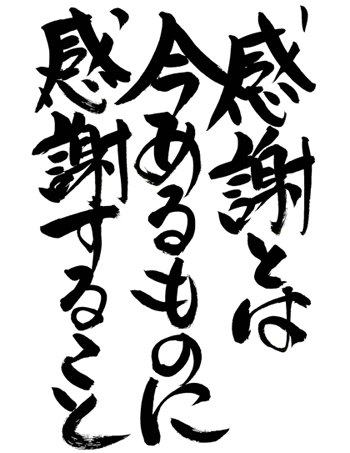 感謝とは
今あるものに
感謝すること